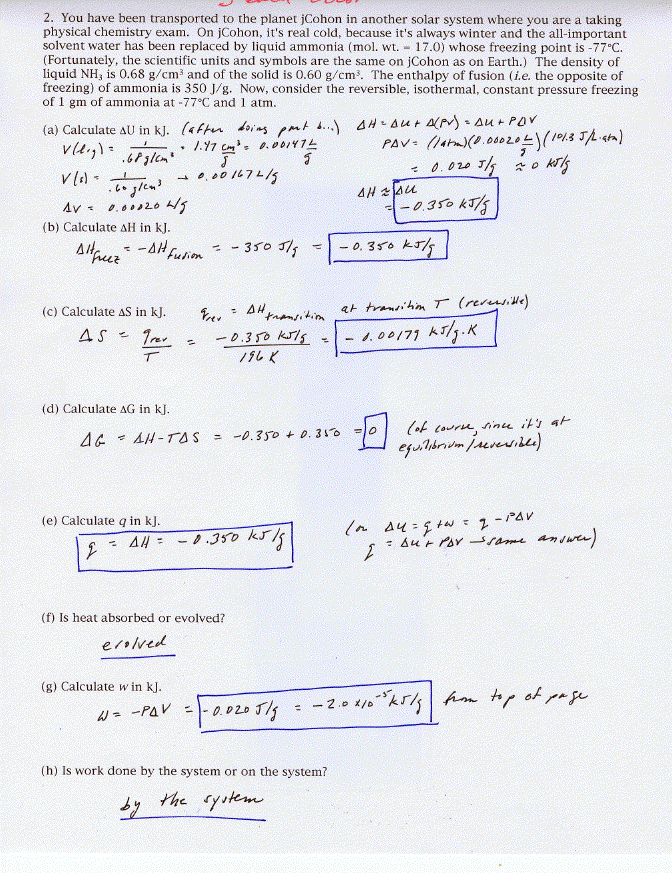 2. You have been transported to the planet jCohon in another solar system where you are a taking
physical chemistry exam. On jCohon, it's real cold, because it's always winter and the all-important
solvent water has been replaced by liquid ammonia (mol. wt. = 17.0) whose freezing point is -77°C.
(Fortunately, the scientific units and symbols are the same on jCohon as on Earth.) The density of
liquid NH₃ is 0.68 g/cm³ and of the solid is 0.60 g/cm³. The enthalpy of fusion (i.e. the opposite of
freezing) of ammonia is 350 J/g. Now, consider the reversible, isothermal, constant pressure freezing
of 1 gm of ammonia at -77°C and 1 atm.
(a) Calculate ΔU in kJ. (after doing part b...) ΔH = ΔU + Δ(PV) = ΔU + PΔV
V(liq) = 1/.68 g/cm³ = 1.47 cm³/g = 0.00147 L/g PΔV = (1 atm)(0.00020 L/g)(101.3 J/L·atm)
V(s) = 1/.60 g/cm³ → 0.00167 L/g = 0.020 J/g ≈ 0 kJ/g
ΔV = 0.00020 L/g ΔH ≈ ΔU = -0.350 kJ/g
(b) Calculate ΔH in kJ.
ΔH freez = -ΔH fusion = -350 J/g = -0.350 kJ/g
(c) Calculate ΔS in kJ. qrev = ΔH transition at transition T (reversible)
ΔS = qrev/T = -0.350 kJ/g / 196 K = -0.00179 kJ/g·K
(d) Calculate ΔG in kJ.
ΔG = ΔH-TΔS = -0.350 + 0.350 = 0 (of course, since it's at
equilibrium/reversible)
(e) Calculate q in kJ. (or ΔU = q+w = q-PΔV
q = ΔH = -0.350 kJ/g q = ΔU + PΔV → same answer)
(f) Is heat absorbed or evolved?
evolved
(g) Calculate w in kJ.
W = -PΔV = -0.020 J/g = -2.0 x10⁻⁵ kJ/g from top of page
(h) Is work done by the system or on the system?
by the system